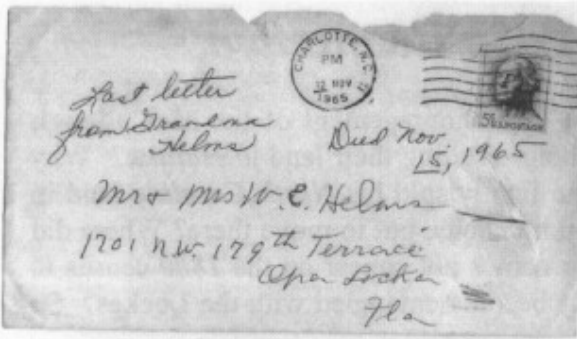 CHARLOTTE, N.C.
PM
12 NOV
1965
5¢
Last letter
from Grandma
Helms
Died Nov.
15, 1965
Mr + Mrs W. E. Helms
1701 N.W. 179th Terrace
Opa Locka
Fla